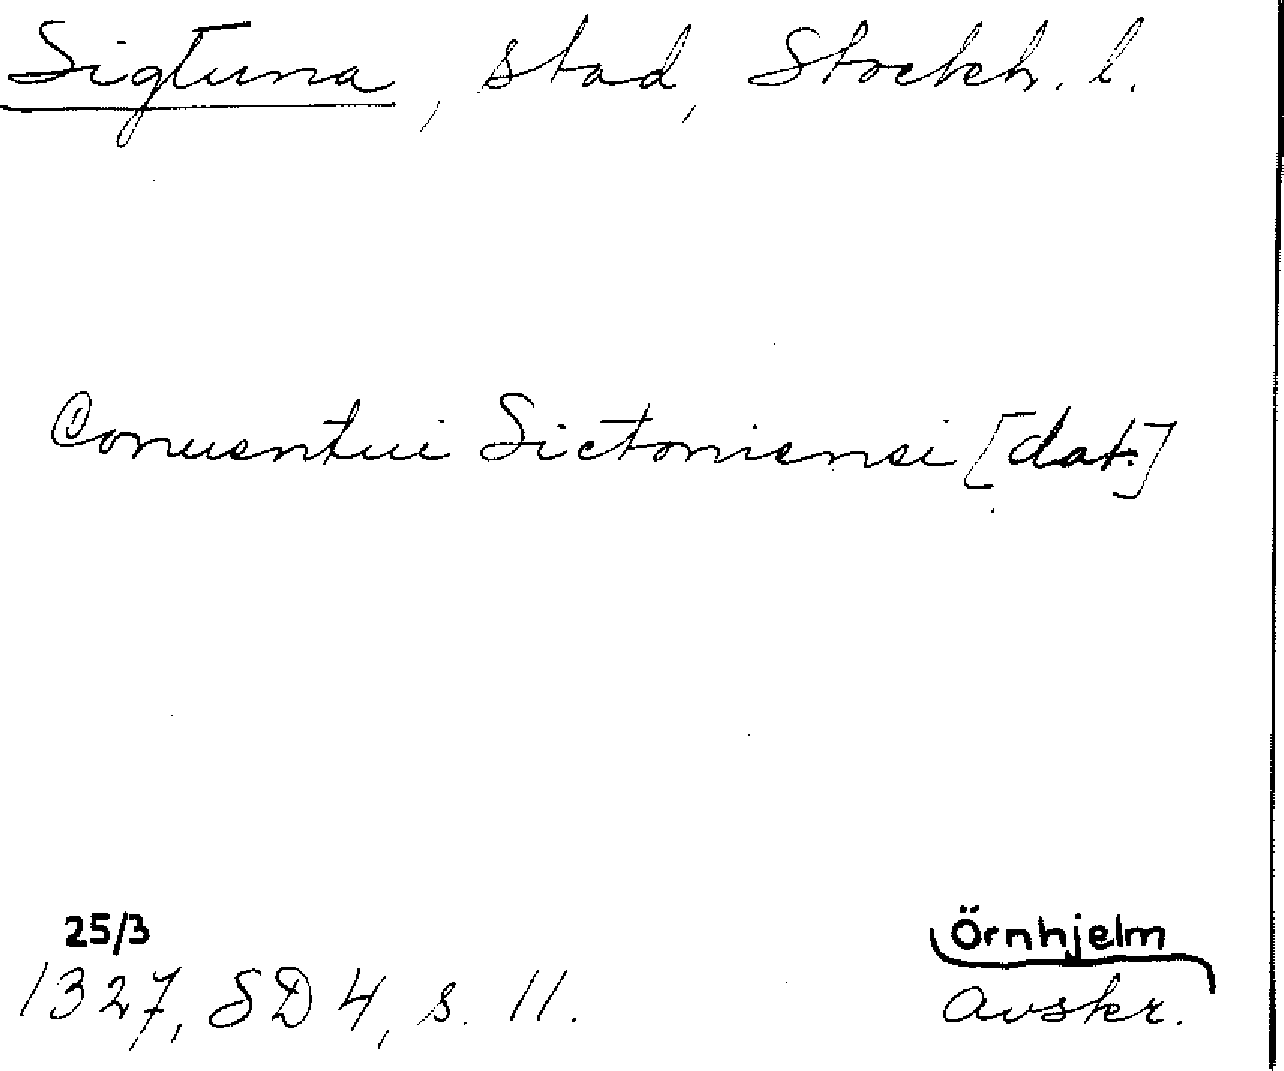 Sigtuna, stad, Stockh. l.
Conuentui Sictoniensi [dat.]
25/3
1327, SD 4, s. 11.
Örnhjelm
Avskr.